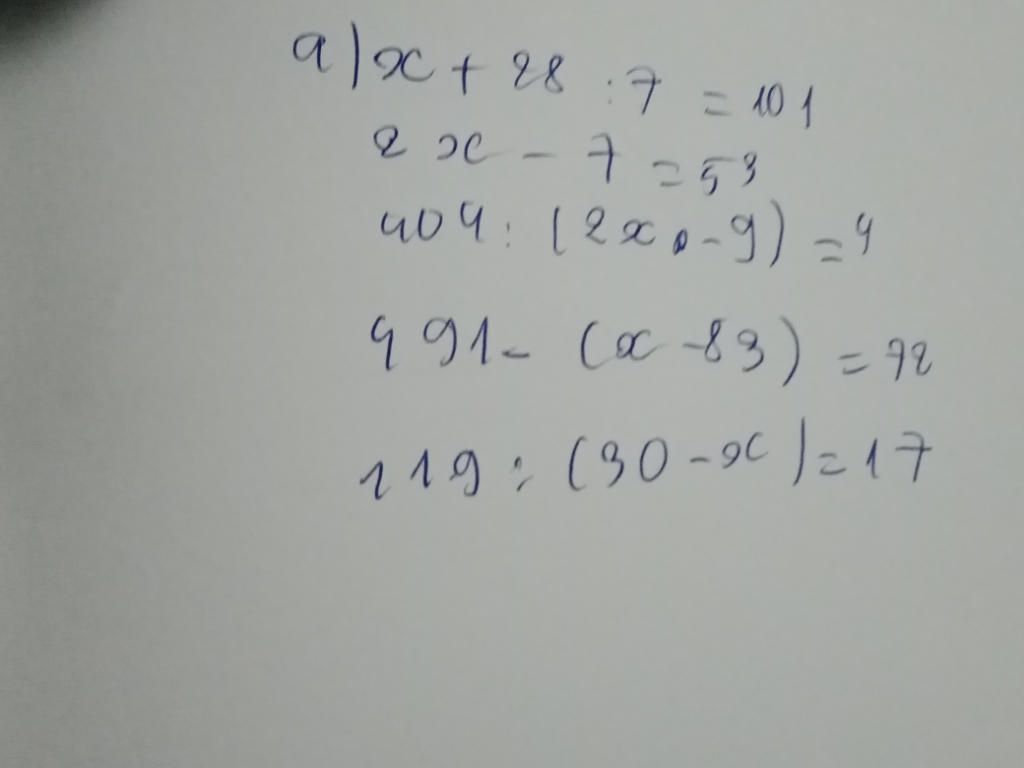 a) x + 28 : 7 = 101
2x - 7 = 53
404 : (2x - 9) = 4
491 - (x - 83) = 72
119 : (30 - x) = 17